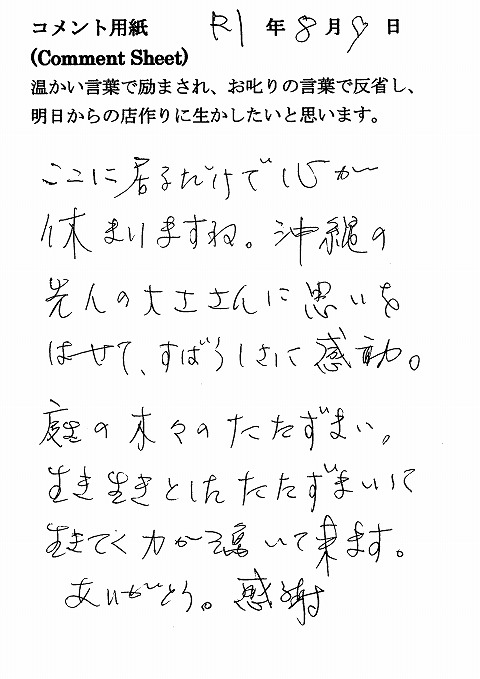 コメント用紙 R1 年 8 月 9 日
(Comment Sheet)
温かい言葉で励まされ、お叱りの言葉で反省し、
明日からの店作りに生かしたいと思います。
ここに居るだけで心が
休まりますね。沖縄の
先人の大工さんに思いを
はせて、すばらしさに感動。
庭の木々のたたずまい。
生き生きとしたたたずまいに
生きてく力が湧いて来ます。
ありがとう。感謝